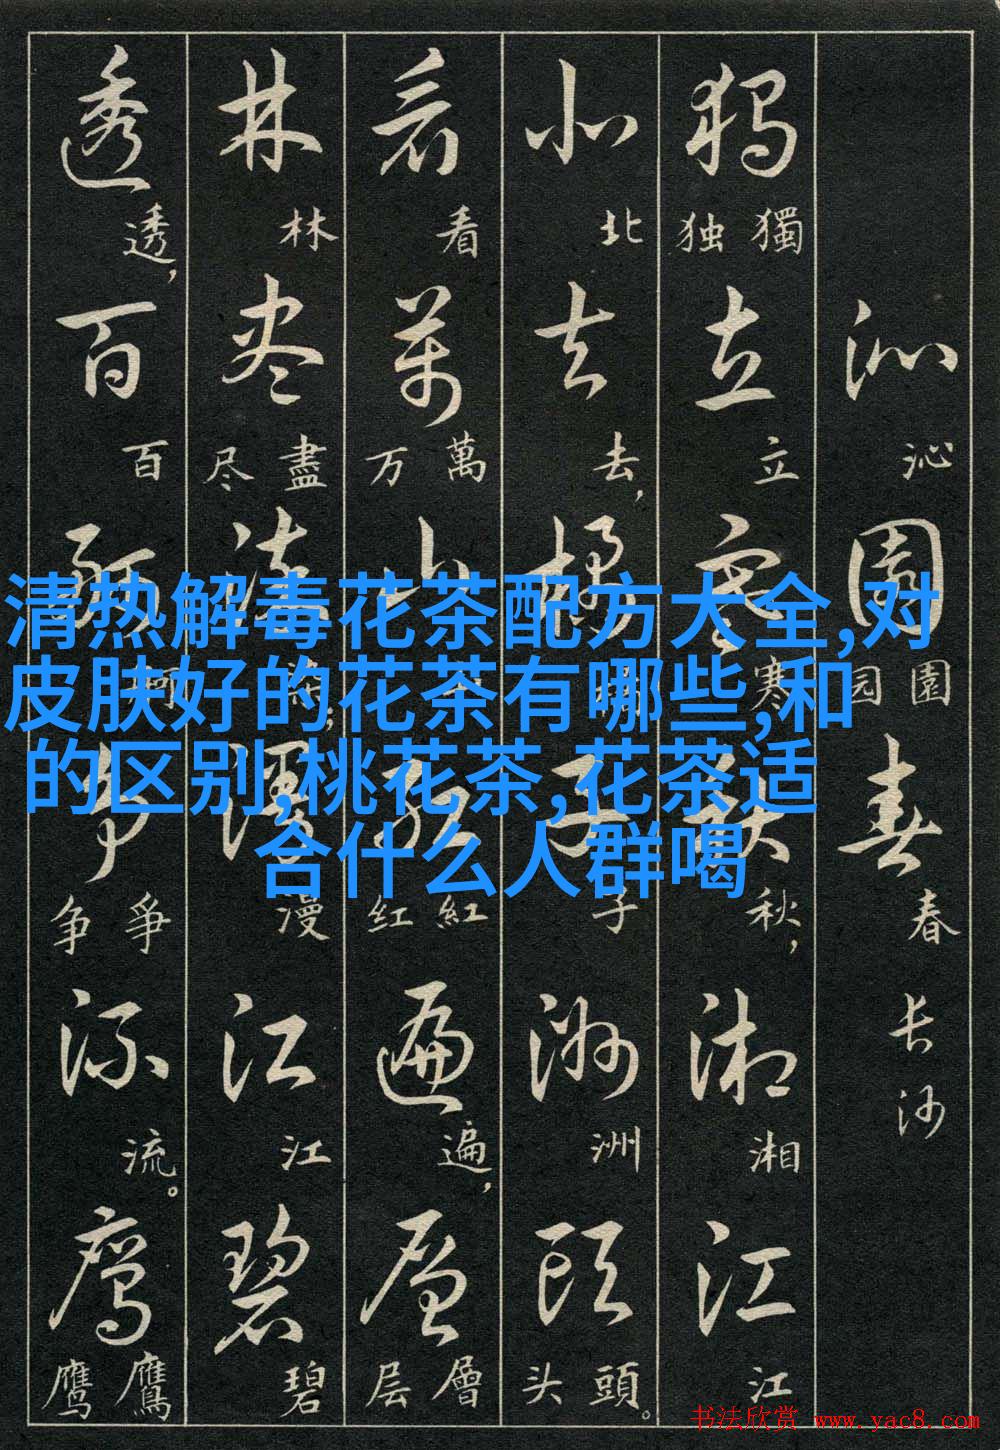 清热解毒花茶配方大全,对
皮肤好的花茶有哪些,和
的区别,桃花茶,花茶适
合什么人群喝
沁园春
沁 园 園 春 长沙
独立寒秋湘江
独 獨 立 寒 秋， 湘 江
北去橘子洲头
北 去， 子 洲 头 頭。
看万山红遍层
看 万 萬 红 紅 遍， 层 層
林尽染漫江碧
林 尽 盡 染； 漫 江 碧
透百舸争流鹰
透， 百 舸 争 爭 流。 鹰 鷹
书法欣赏 www.yac8.com